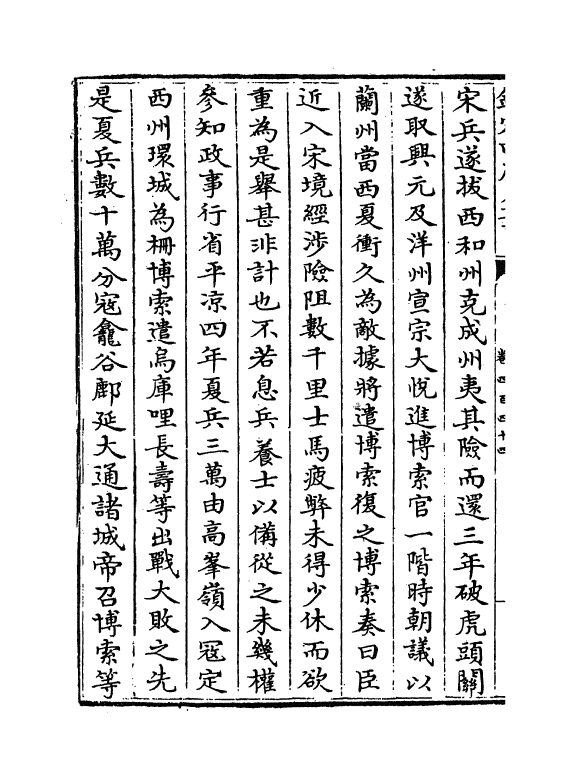 宋兵遂拔西和州克成州夷其險而還三年破虎頭關
遂取興元及洋州宣宗大悦進博索官一階時朝議以
蘭州當西夏衝久為敵據將遣博索復之博索奏曰臣
近入宋境經涉險阻數千里士馬疲弊未得少休而欲
重為是舉甚非計也不若息兵養士以備從之未幾權
參知政事行省平凉四年夏兵三萬由高峯嶺入寇定
西州環城為柵博索遣烏庫哩長壽等出戰大敗之先
是夏兵數十萬分寇龕谷鄜延大通諸城帝召博索等